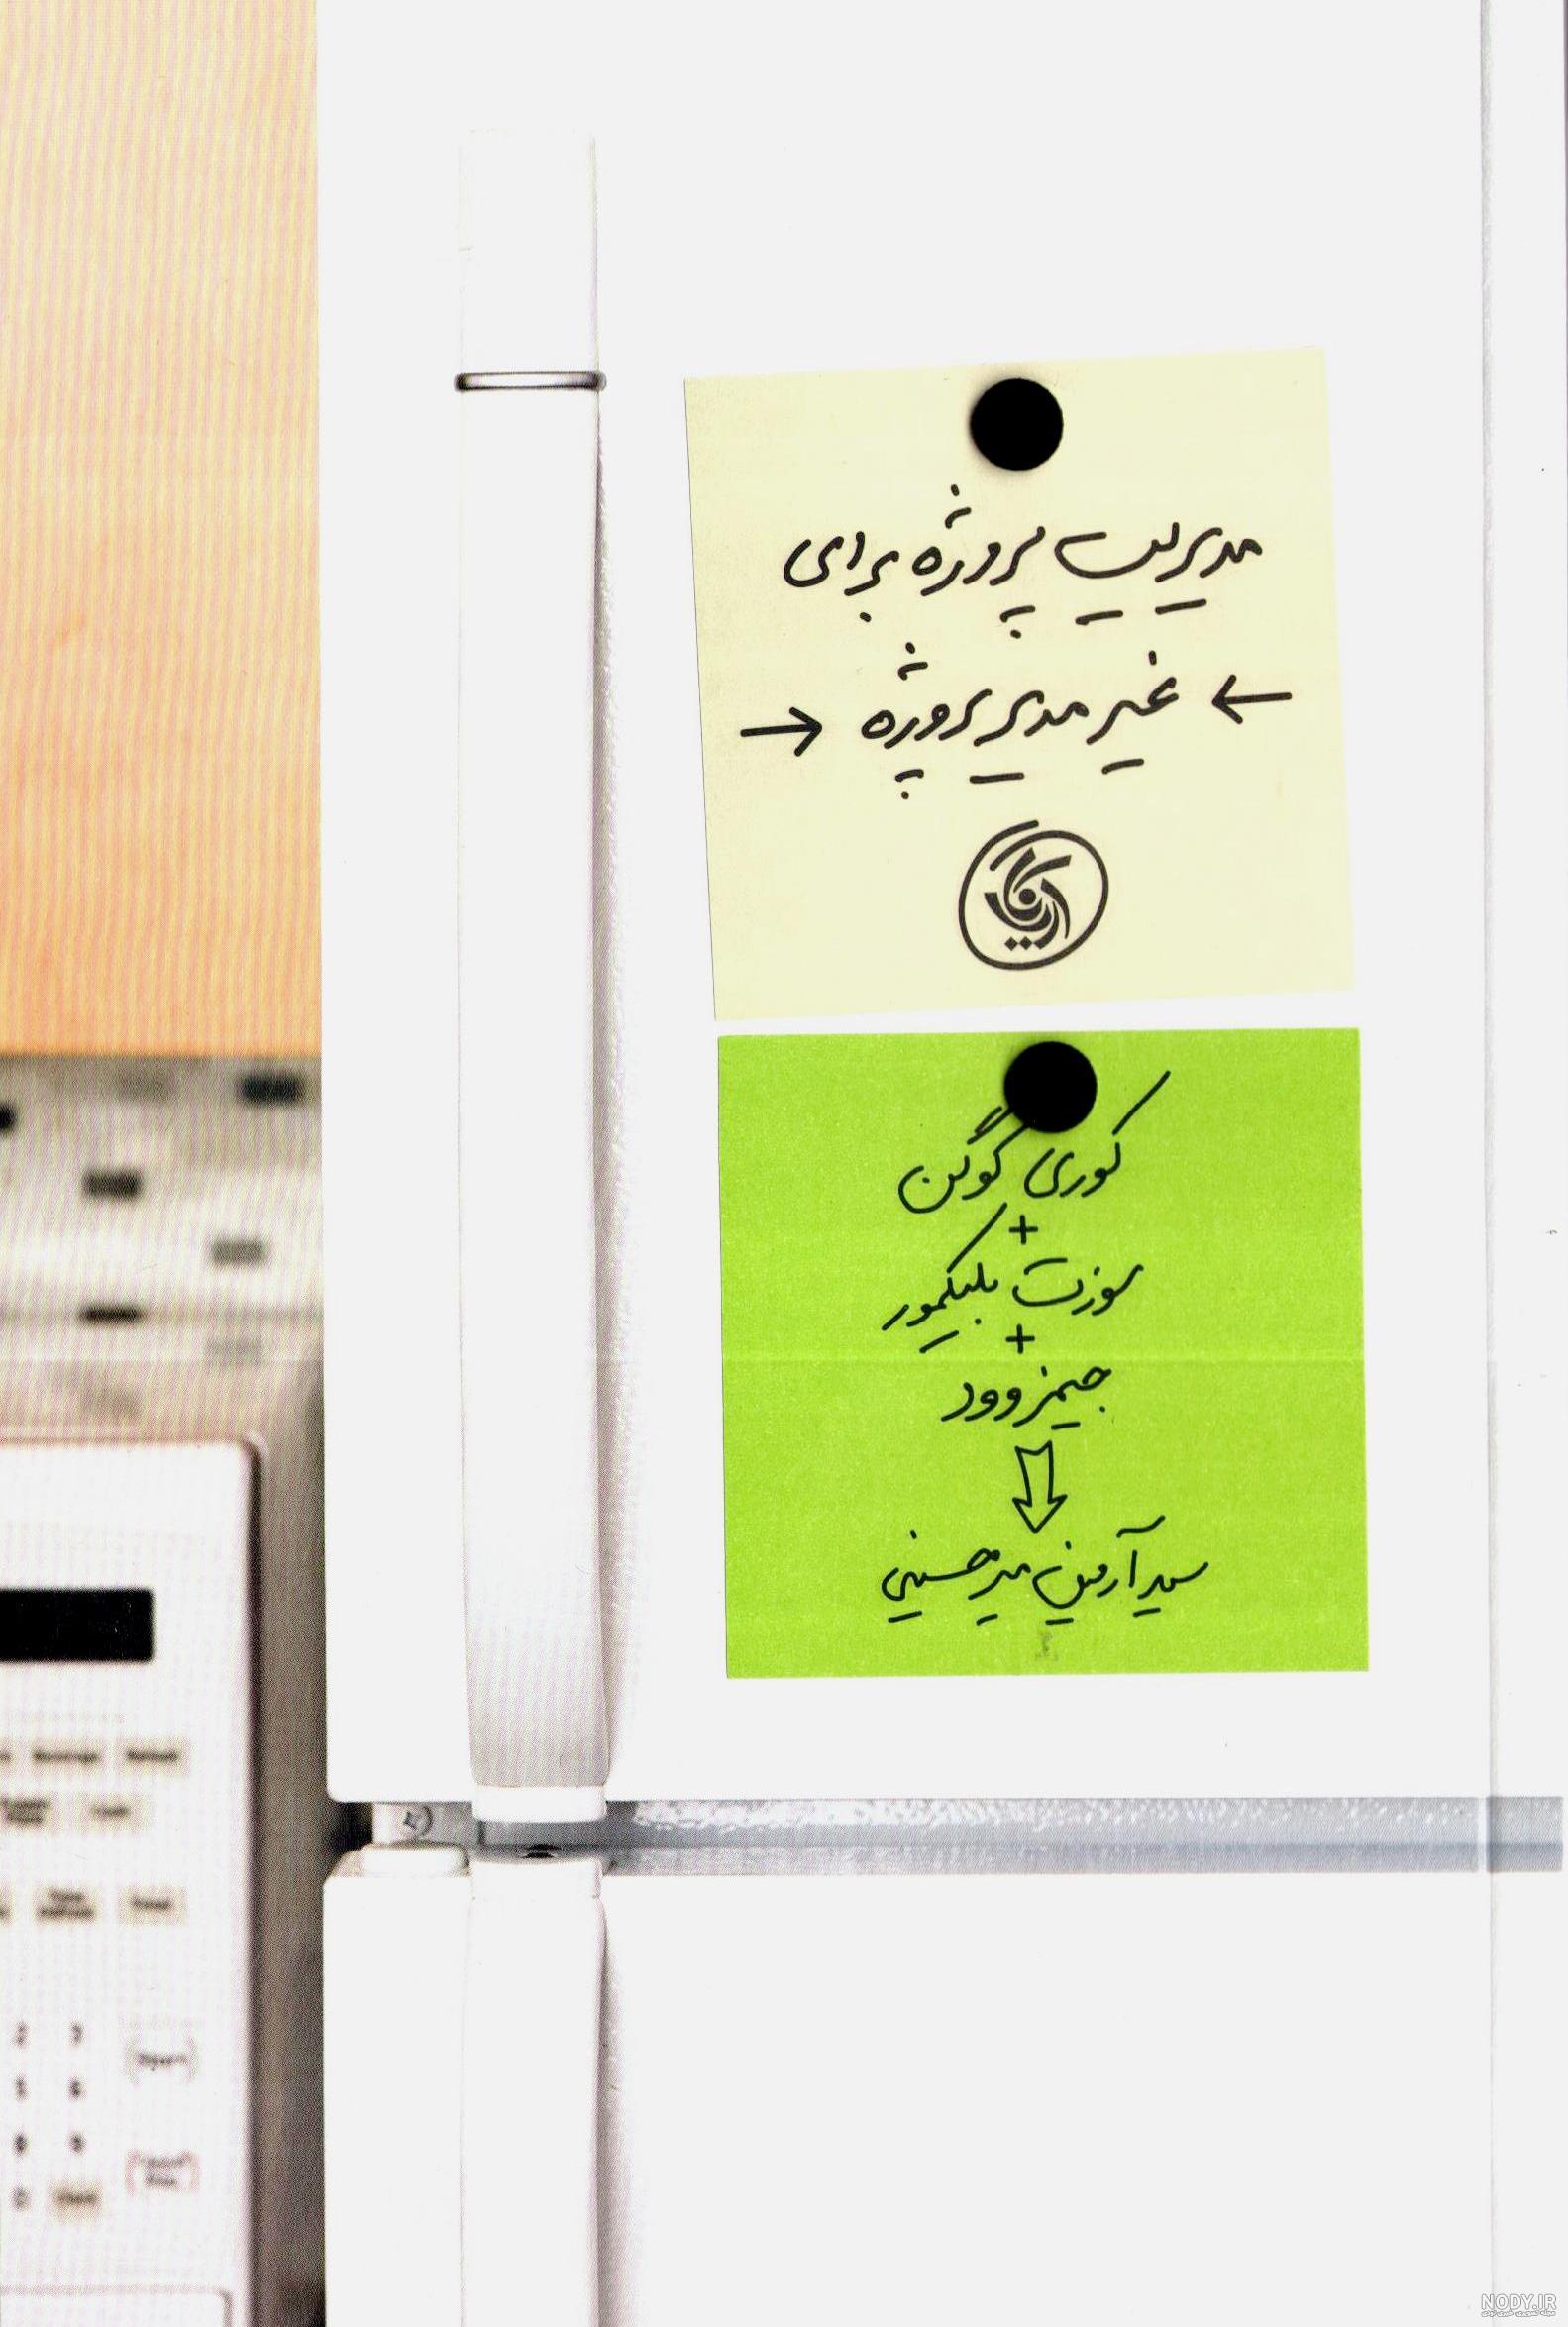 مدیریت پروژه برای
← غیر مدیر پروژه →
آریانا
کوری کوگن
+
سوزت بلیکمور
+
جیمز وود
سید آرمین میرحسینی
2 3
5 6
8 9
0
NODY.IR